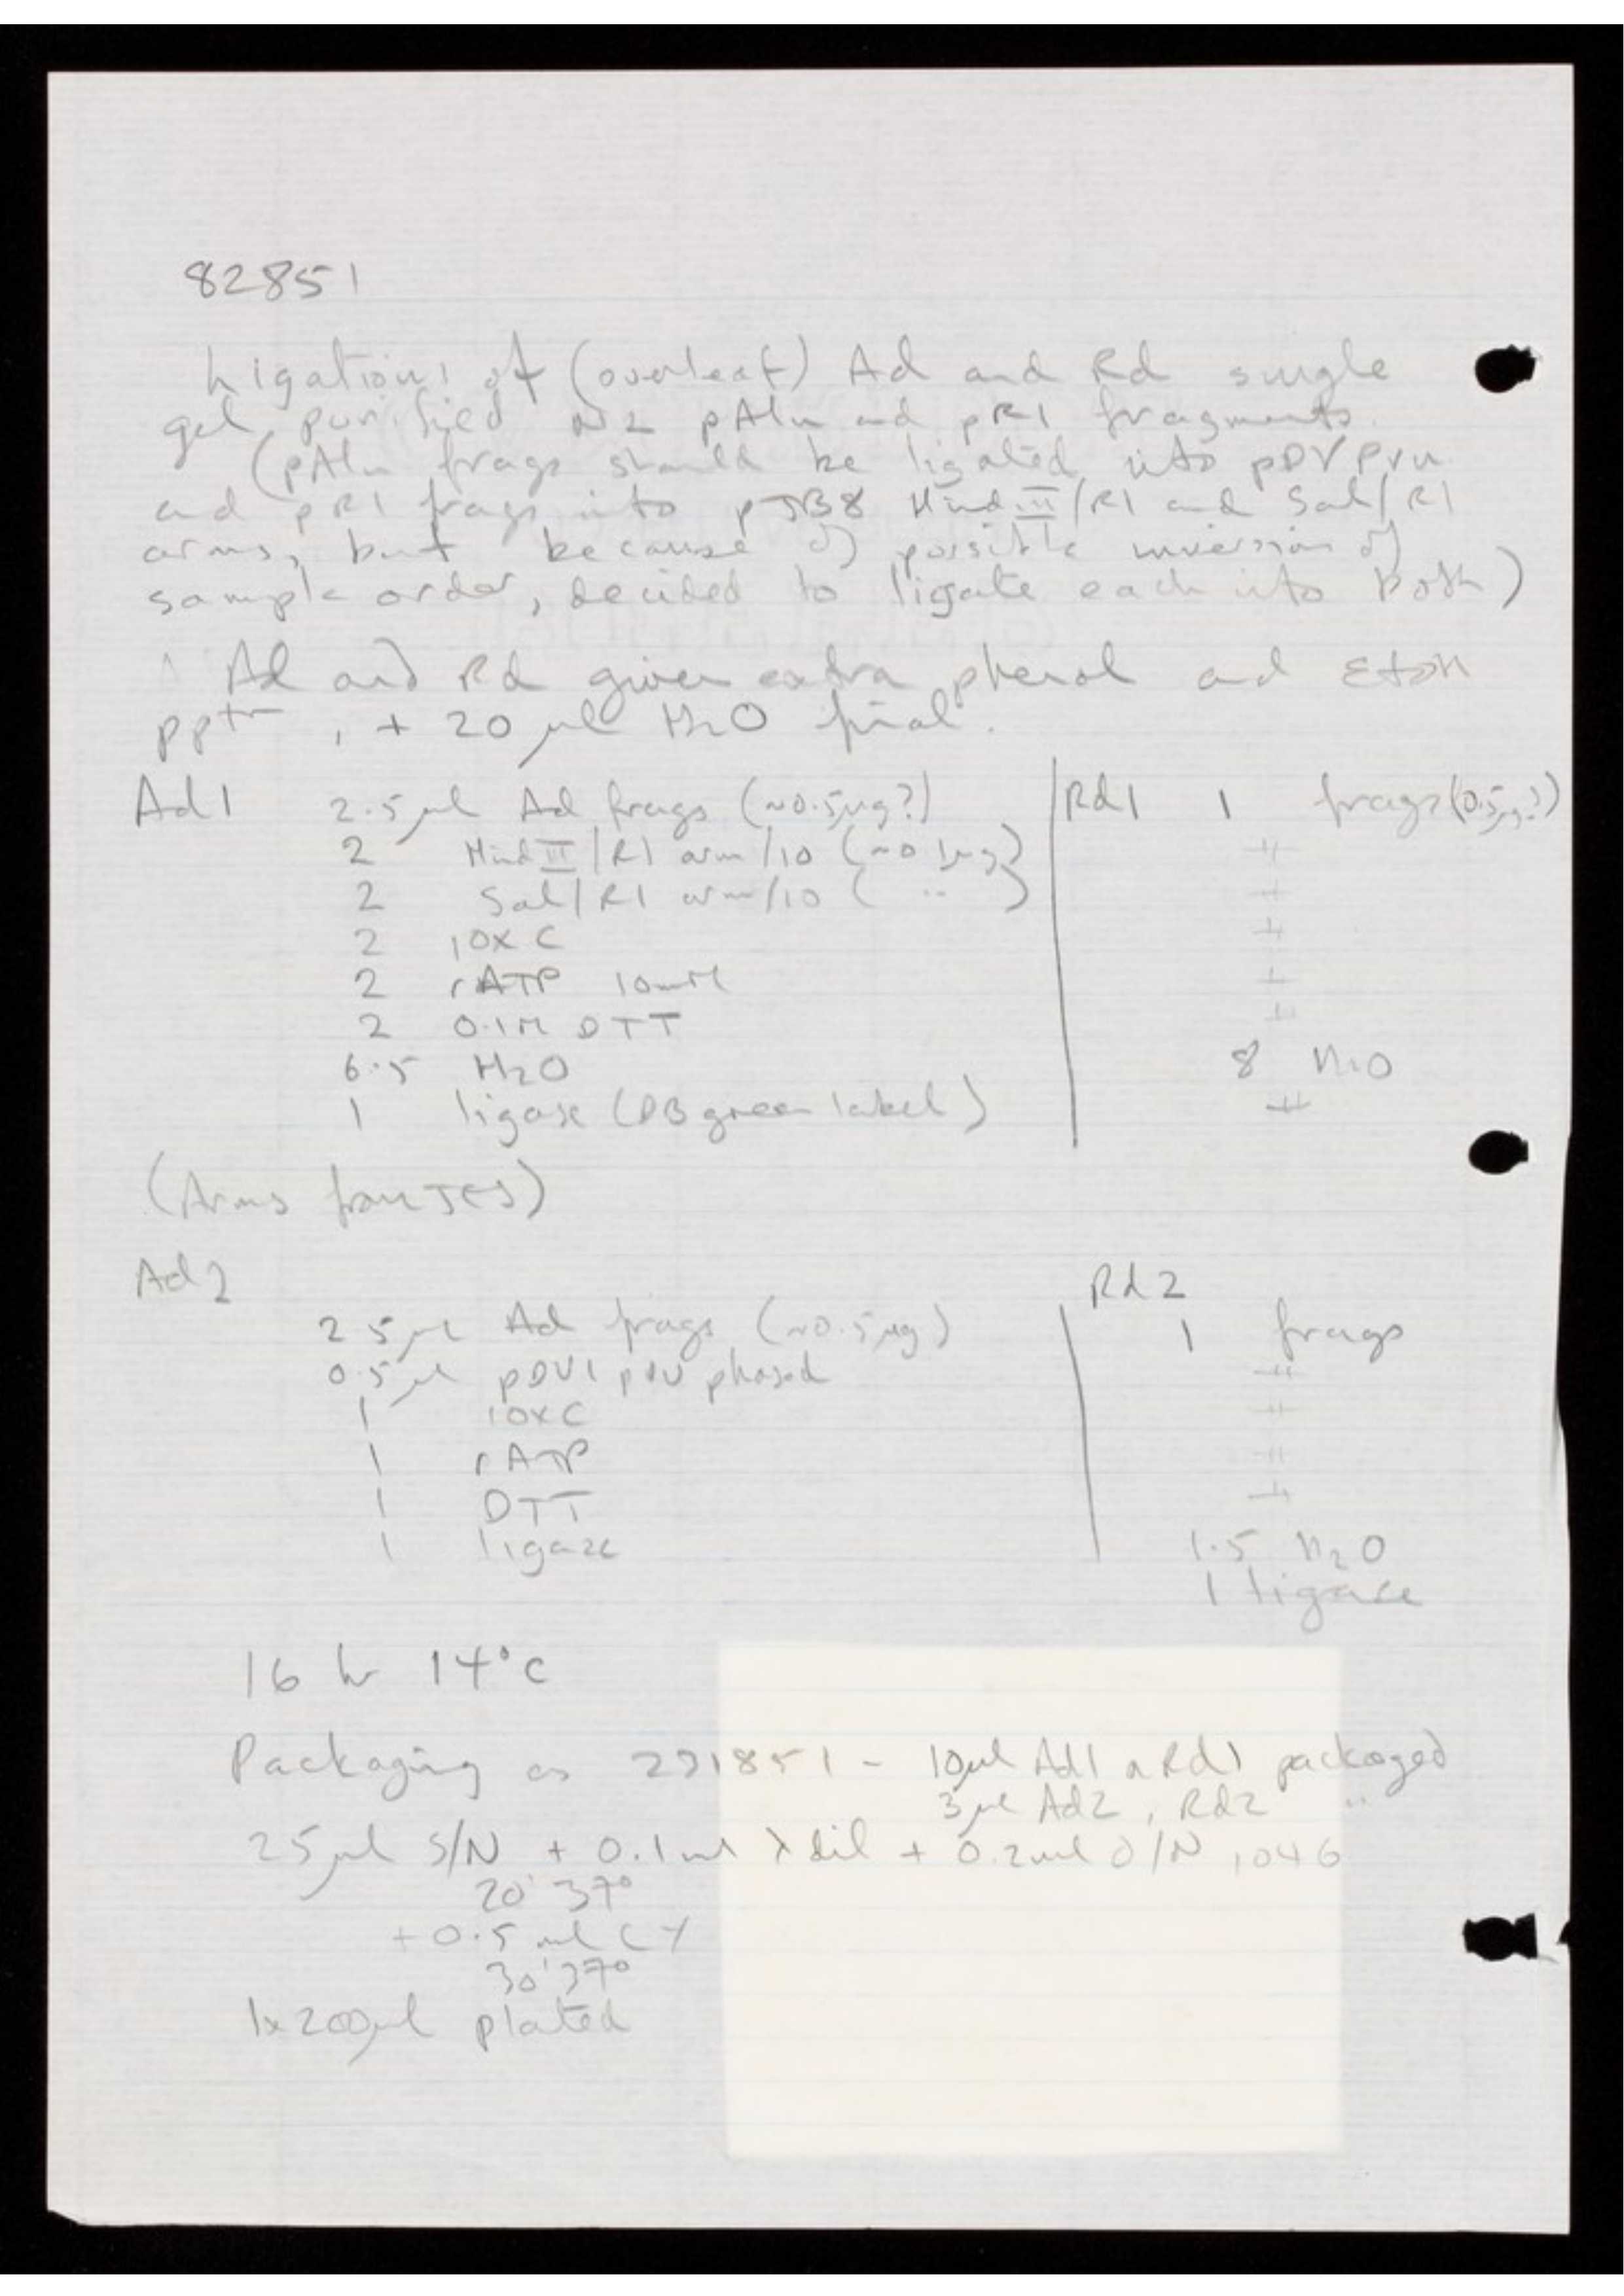 82851
Ligations of (overleaf) Ad and Rd single
gel purified N2 pAlu and pRI fragments.
(pAlu frags should be ligated into pDVPvu
and pRI frags into pJB8 Hind III/RI and Sal/RI
arms, but because of possible inversion of
sample order, decided to ligate each into both)
Ad and Rd given extra phenol and EtOH
pptn, + 20 µl H2O final.
Ad1 2.5 µl Ad frags (~0.5µg?) Rd1 1 frags (0.5µg?)
2 Hind III/RI arm/10 (~0.1µg) "
2 Sal/RI arm/10 ( " ) "
2 10x C "
2 rATP 10mM "
2 0.1M DTT "
6.5 H2O 8 H2O
1 ligase (DB green label) "
(Arms from JES)
Ad2 Rd2
2.5 µl Ad frags (~0.5µg) 1 frags
0.5 µl pDV1 pvu phased "
1 10xC "
1 rATP "
1 DTT "
1 ligase 1.5 H2O
1 ligase
16 hr 14°C
Packaging as 291851 - 10µl Ad1 + Rd1 packaged
3µl Ad2, Rd2 "
25 µl S/N + 0.1 ml λ dil + 0.2ml O/N 1046
20' 37°
+ 0.5 ml CY
30' 37°
1x 200µl plated